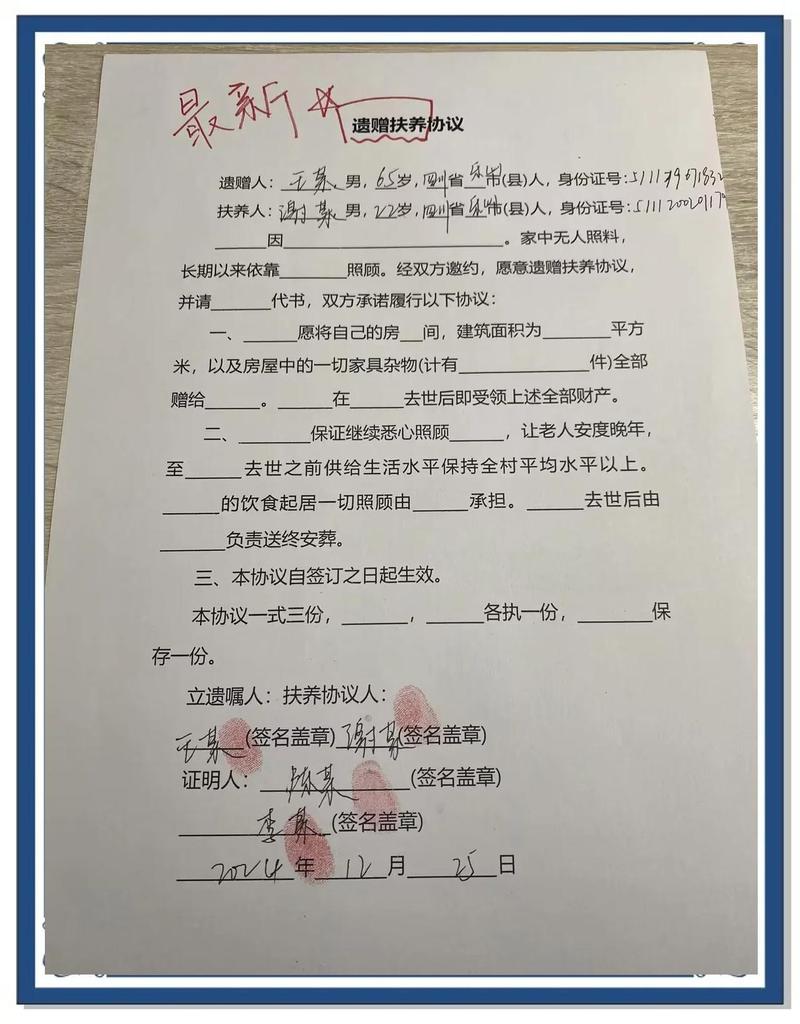 最新
遗赠扶养协议
遗赠人：王某 男，65岁，四川省乐山市(县)人，身份证号：
扶养人：谢某 男，22岁，四川省乐山市(县)人，身份证号：
______因______________________。家中无人照料，
长期以来依靠________照顾。经双方邀约，愿意遗赠扶养协议，
并请______代书，双方承诺履行以下协议：
一、______愿将自己的房__间，建筑面积为________平方
米，以及房屋中的一切家具杂物(计有______________件)全部
赠给______。______在______去世后即受领上述全部财产。
二、________保证继续悉心照顾______，让老人安度晚年，
至______去世之前供给生活水平保持全村平均水平以上。
______的饮食起居一切照顾由______承担。______去世后由
_______负责送终安葬。
三、本协议自签订之日起生效。
本协议一式三份，_______，______各执一份，________保
存一份。
立遗嘱人：扶养协议人：
王某(签名盖章)谢某(签名盖章)
证明人：陈某(签名盖章)
李某(签名盖章)
2024年12月25日